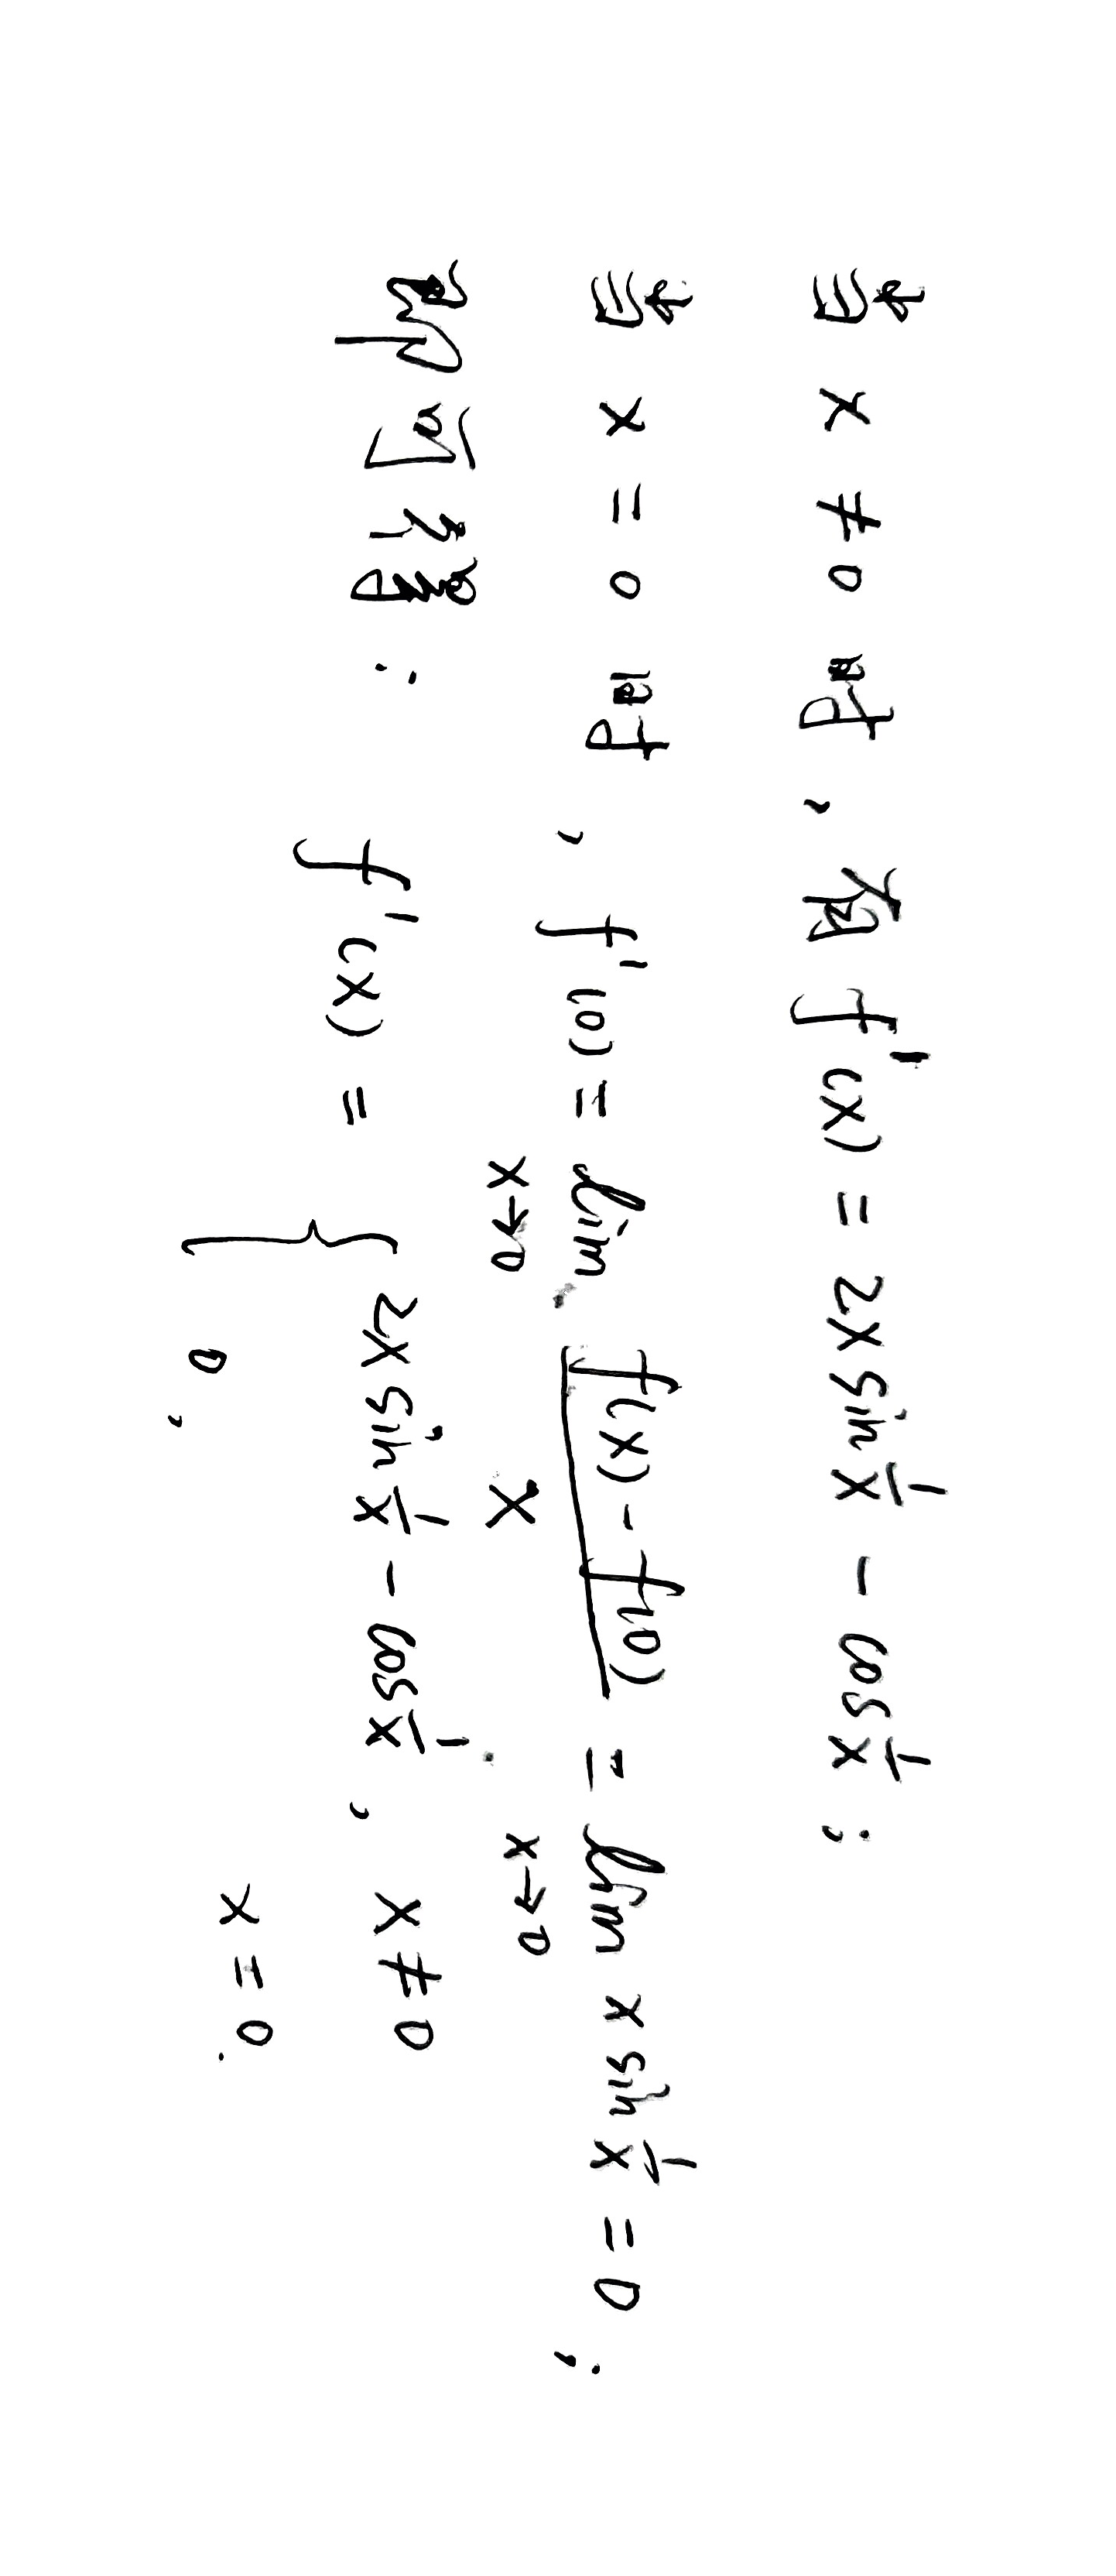 当 x ≠ 0 时, 有 f'(x) = 2x sin 1/x - cos 1/x ;
当 x = 0 时, f'(0) = lim x→0 (f(x) - f(0))/x = lim x→0 x sin 1/x = 0 ;
即 f'(x) = { 2x sin 1/x - cos 1/x , x ≠ 0
0 , x = 0 .